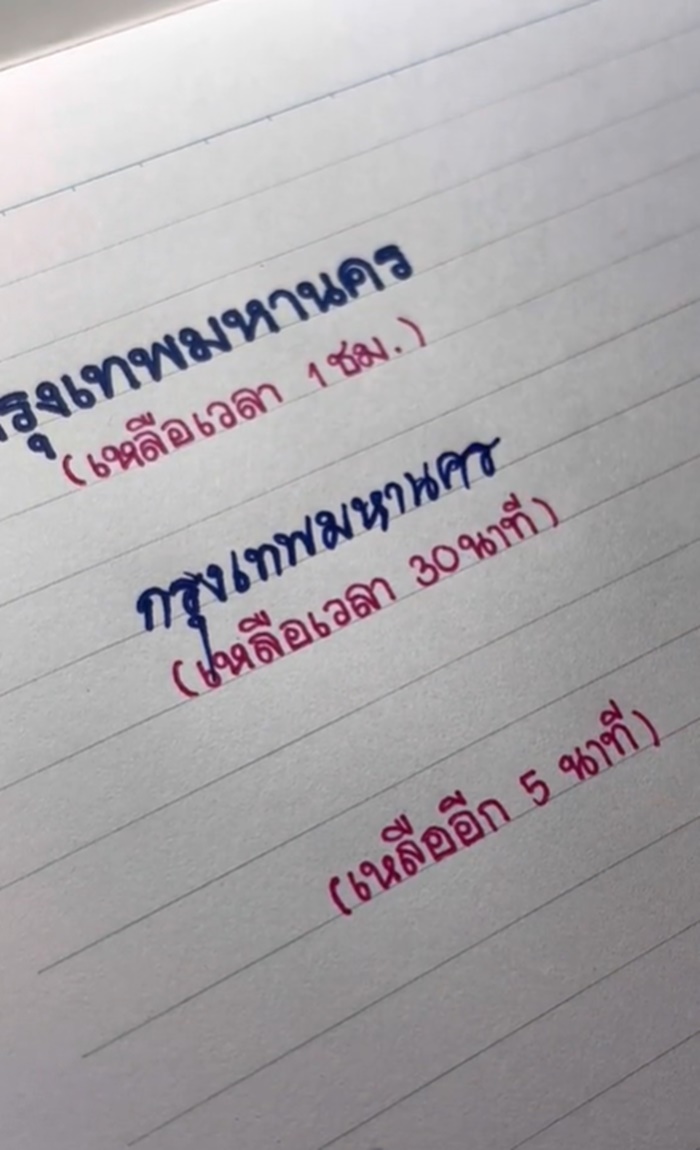 กรุงเทพมหานคร
(เหลือเวลา 1 ชม.)
กรุงเทพมหานคร
(เหลือเวลา 30 นาที)
(เหลืออีก 5 นาที)